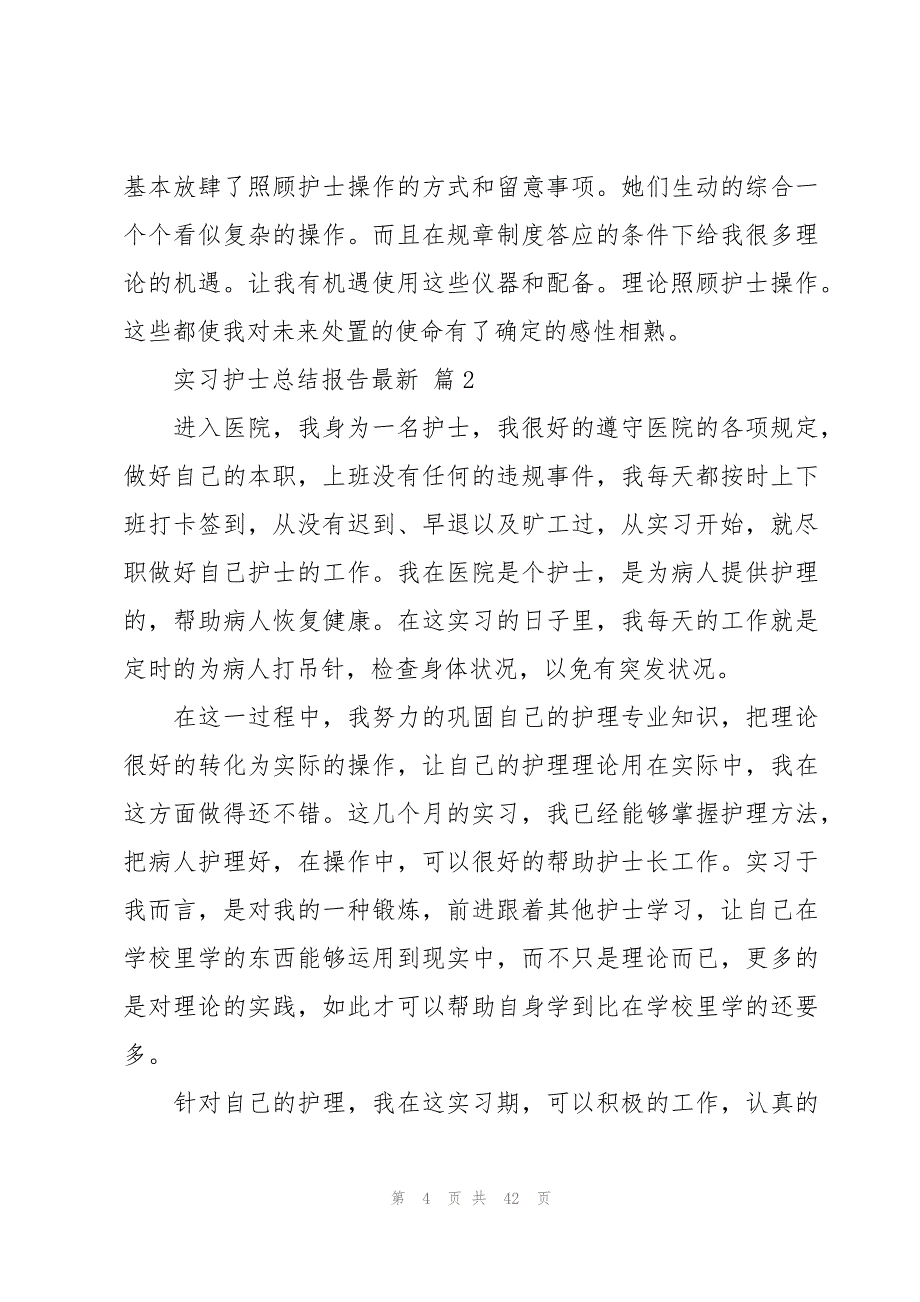 基本放肆了照顾护士操作的方式和留意事项。她们生动的综合一
个个看似复杂的操作。而且在规章制度答应的条件下给我很多理
论的机遇。让我有机遇使用这些仪器和配备。理论照顾护士操作。
这些都使我对未来处置的使命有了确定的感性相熟。
实习护士总结报告最新 篇2
进入医院，我身为一名护士，我很好的遵守医院的各项规定，
做好自己的本职，上班没有任何的违规事件，我每天都按时上下
班打卡签到，从没有迟到、早退以及旷工过，从实习开始，就尽
职做好自己护士的工作。我在医院是个护士，是为病人提供护理
的，帮助病人恢复健康。在这实习的日子里，我每天的工作就是
定时的为病人打吊针，检查身体状况，以免有突发状况。
在这一过程中，我努力的巩固自己的护理专业知识，把理论
很好的转化为实际的操作，让自己的护理理论用在实际中，我在
这方面做得还不错。这几个月的实习，我已经能够掌握护理方法，
把病人护理好，在操作中，可以很好的帮助护士长工作。实习于
我而言，是对我的一种锻炼，前进跟着其他护士学习，让自己在
学校里学的东西能够运用到现实中，而不只是理论而已，更多的
是对理论的实践，如此才可以帮助自身学到比在学校里学的还要
多。
针对自己的护理，我在这实习期，可以积极的工作，认真的
第 4 页 共 42 页